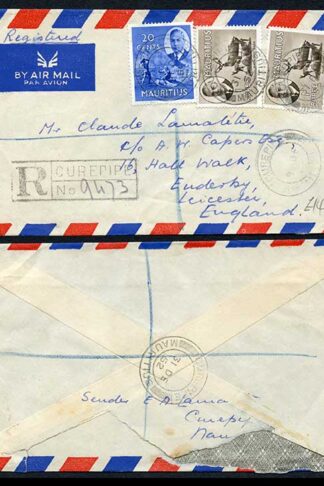 Registered
BY AIR MAIL
PAR AVION
20
CENTS
MAURITIUS
MAURITIUS
MAURITIUS
Mr Claude Lamalétie,
c/o A. H. Capers Esq
16, Hall Walk,
Enderby,
Leicester,
England.
R
CUREPIPE
No 9473
MAURITIUS
31 DE
52
Sender E. A. Lama
Curepi
Mau